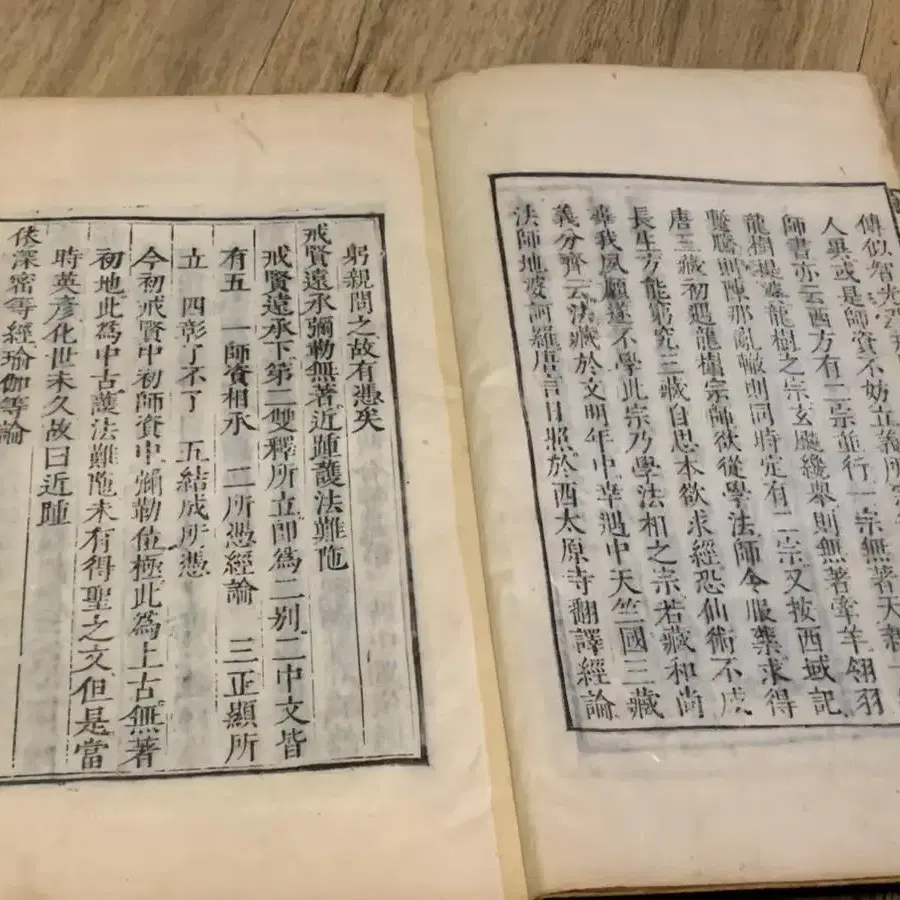 傳似智光
人異或是師資不妨立義所宗
師書亦云西方有二宗並行一宗無著天親
龍樹提婆龍樹之宗玄應纔舉則無著牽羊翎羽
鷩鷺則陳那亂轍則同時定有二宗又按西域記
唐三藏初遇龍樹宗師欲從學法師令服藥求得
長生方能窮究三藏自思本欲求經恐仙術不成
辜我夙願遂不學此宗乃學法相之宗若藏和尚
義分齊云法藏於文明年中幸遇中天竺國三藏
法師地婆訶羅唐言日照於西太原寺翻譯經論
躬親問之故有憑矣
戒賢遠承彌勒無著近踵護法難陁
戒賢遠承下第二雙釋所立即為二別二中文皆
有五 一師資相承 二所憑經論 三正顯所
立 四彰了不了 五結成所憑
今初戒賢中初師資中彌勒位極此為上古無著
初地此為中古護法難陁未有得聖之文但是當
時英彥化世未久故曰近踵
依深密等經瑜伽等論